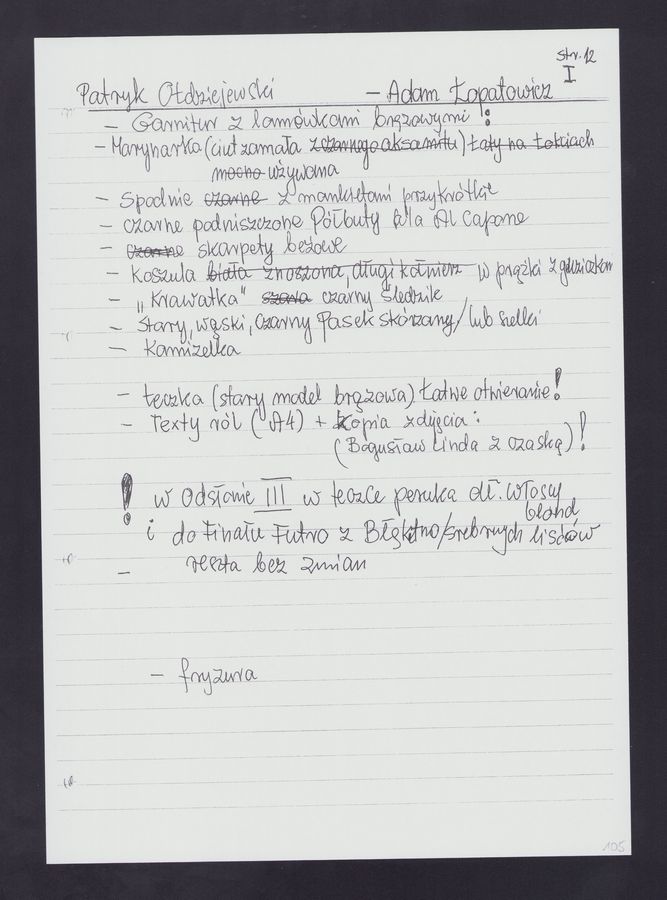 str. 12
I
Patryk Ołdziejewski – Adam Łopatowicz
– Garnitur z lamówkami brązowymi !
– Marynarka (ciut zamała z czarnego aksamitu) łaty na łokciach
mocno używana
– Spodnie czarne z mankietami przykrótkie
– czarne podniszczone Półbuty à'la Al Capone
– czarne skarpety beżowe
– Koszula biała znoszona, długi kołnierz w prążki z guziczkami
– „Krawatka" szara czarny śledzik
– Stary, wąski, czarny Pasek skórzany/lub szelki
– Kamizelka
– teczka (stary model brązowa) Łatwe otwieranie!
– Texty ról (A4) + Kopia zdjęcia :
(Bogusław Linda z czaską) !
! w Odsłonie III w teczce peruka dł. włosy
blond
i do Finału Futro z Błękitno/srebrnych lisów
– reszta bez zmian
– fryzura
105